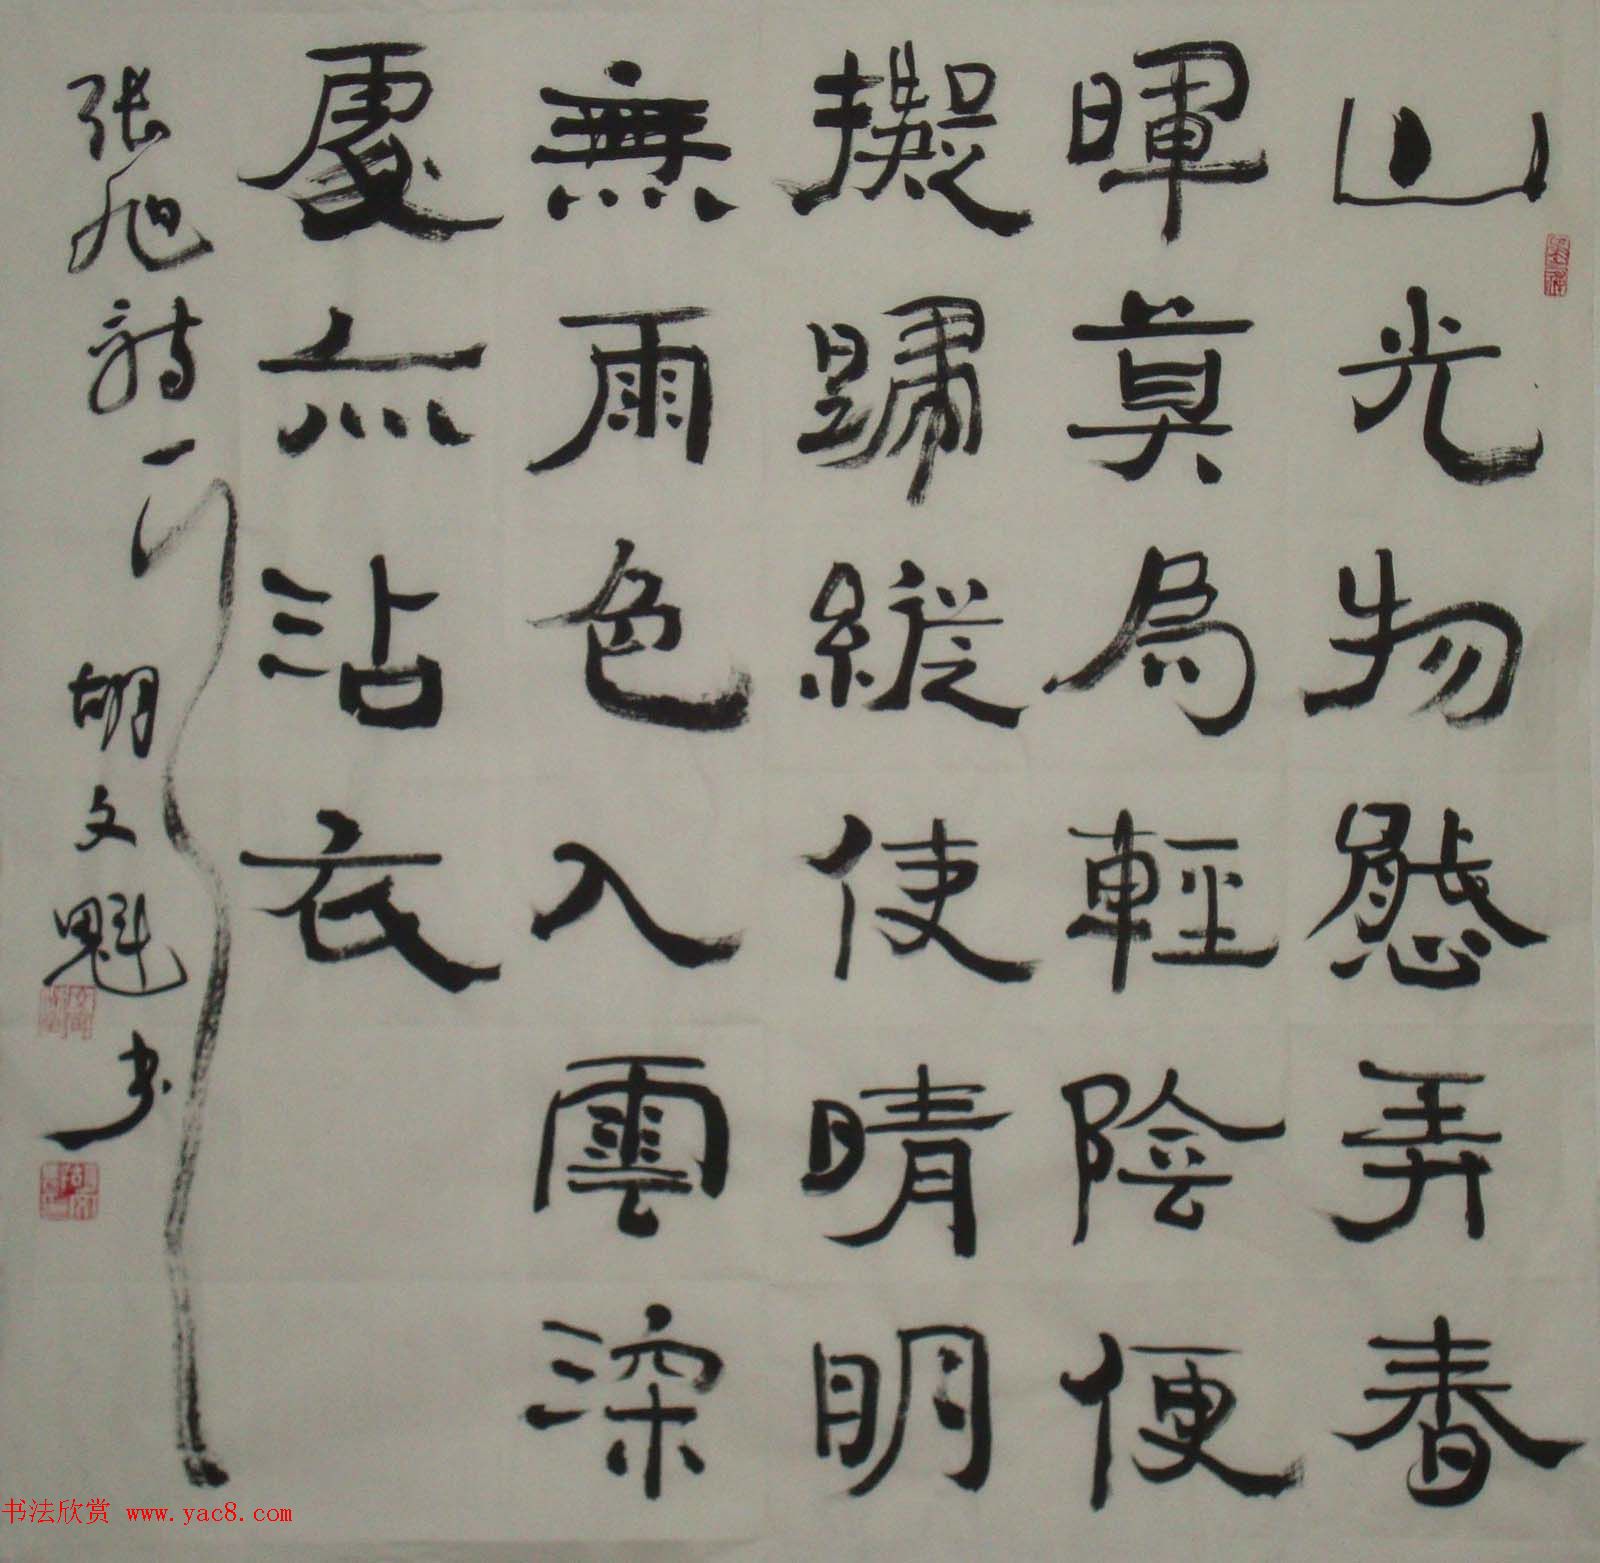 山光物態弄春
暉莫為輕陰便
擬歸縱使晴明
無雨色入雲深
處亦沾衣
张旭詩一
胡文魁书
书法欣赏 www.yac8.com